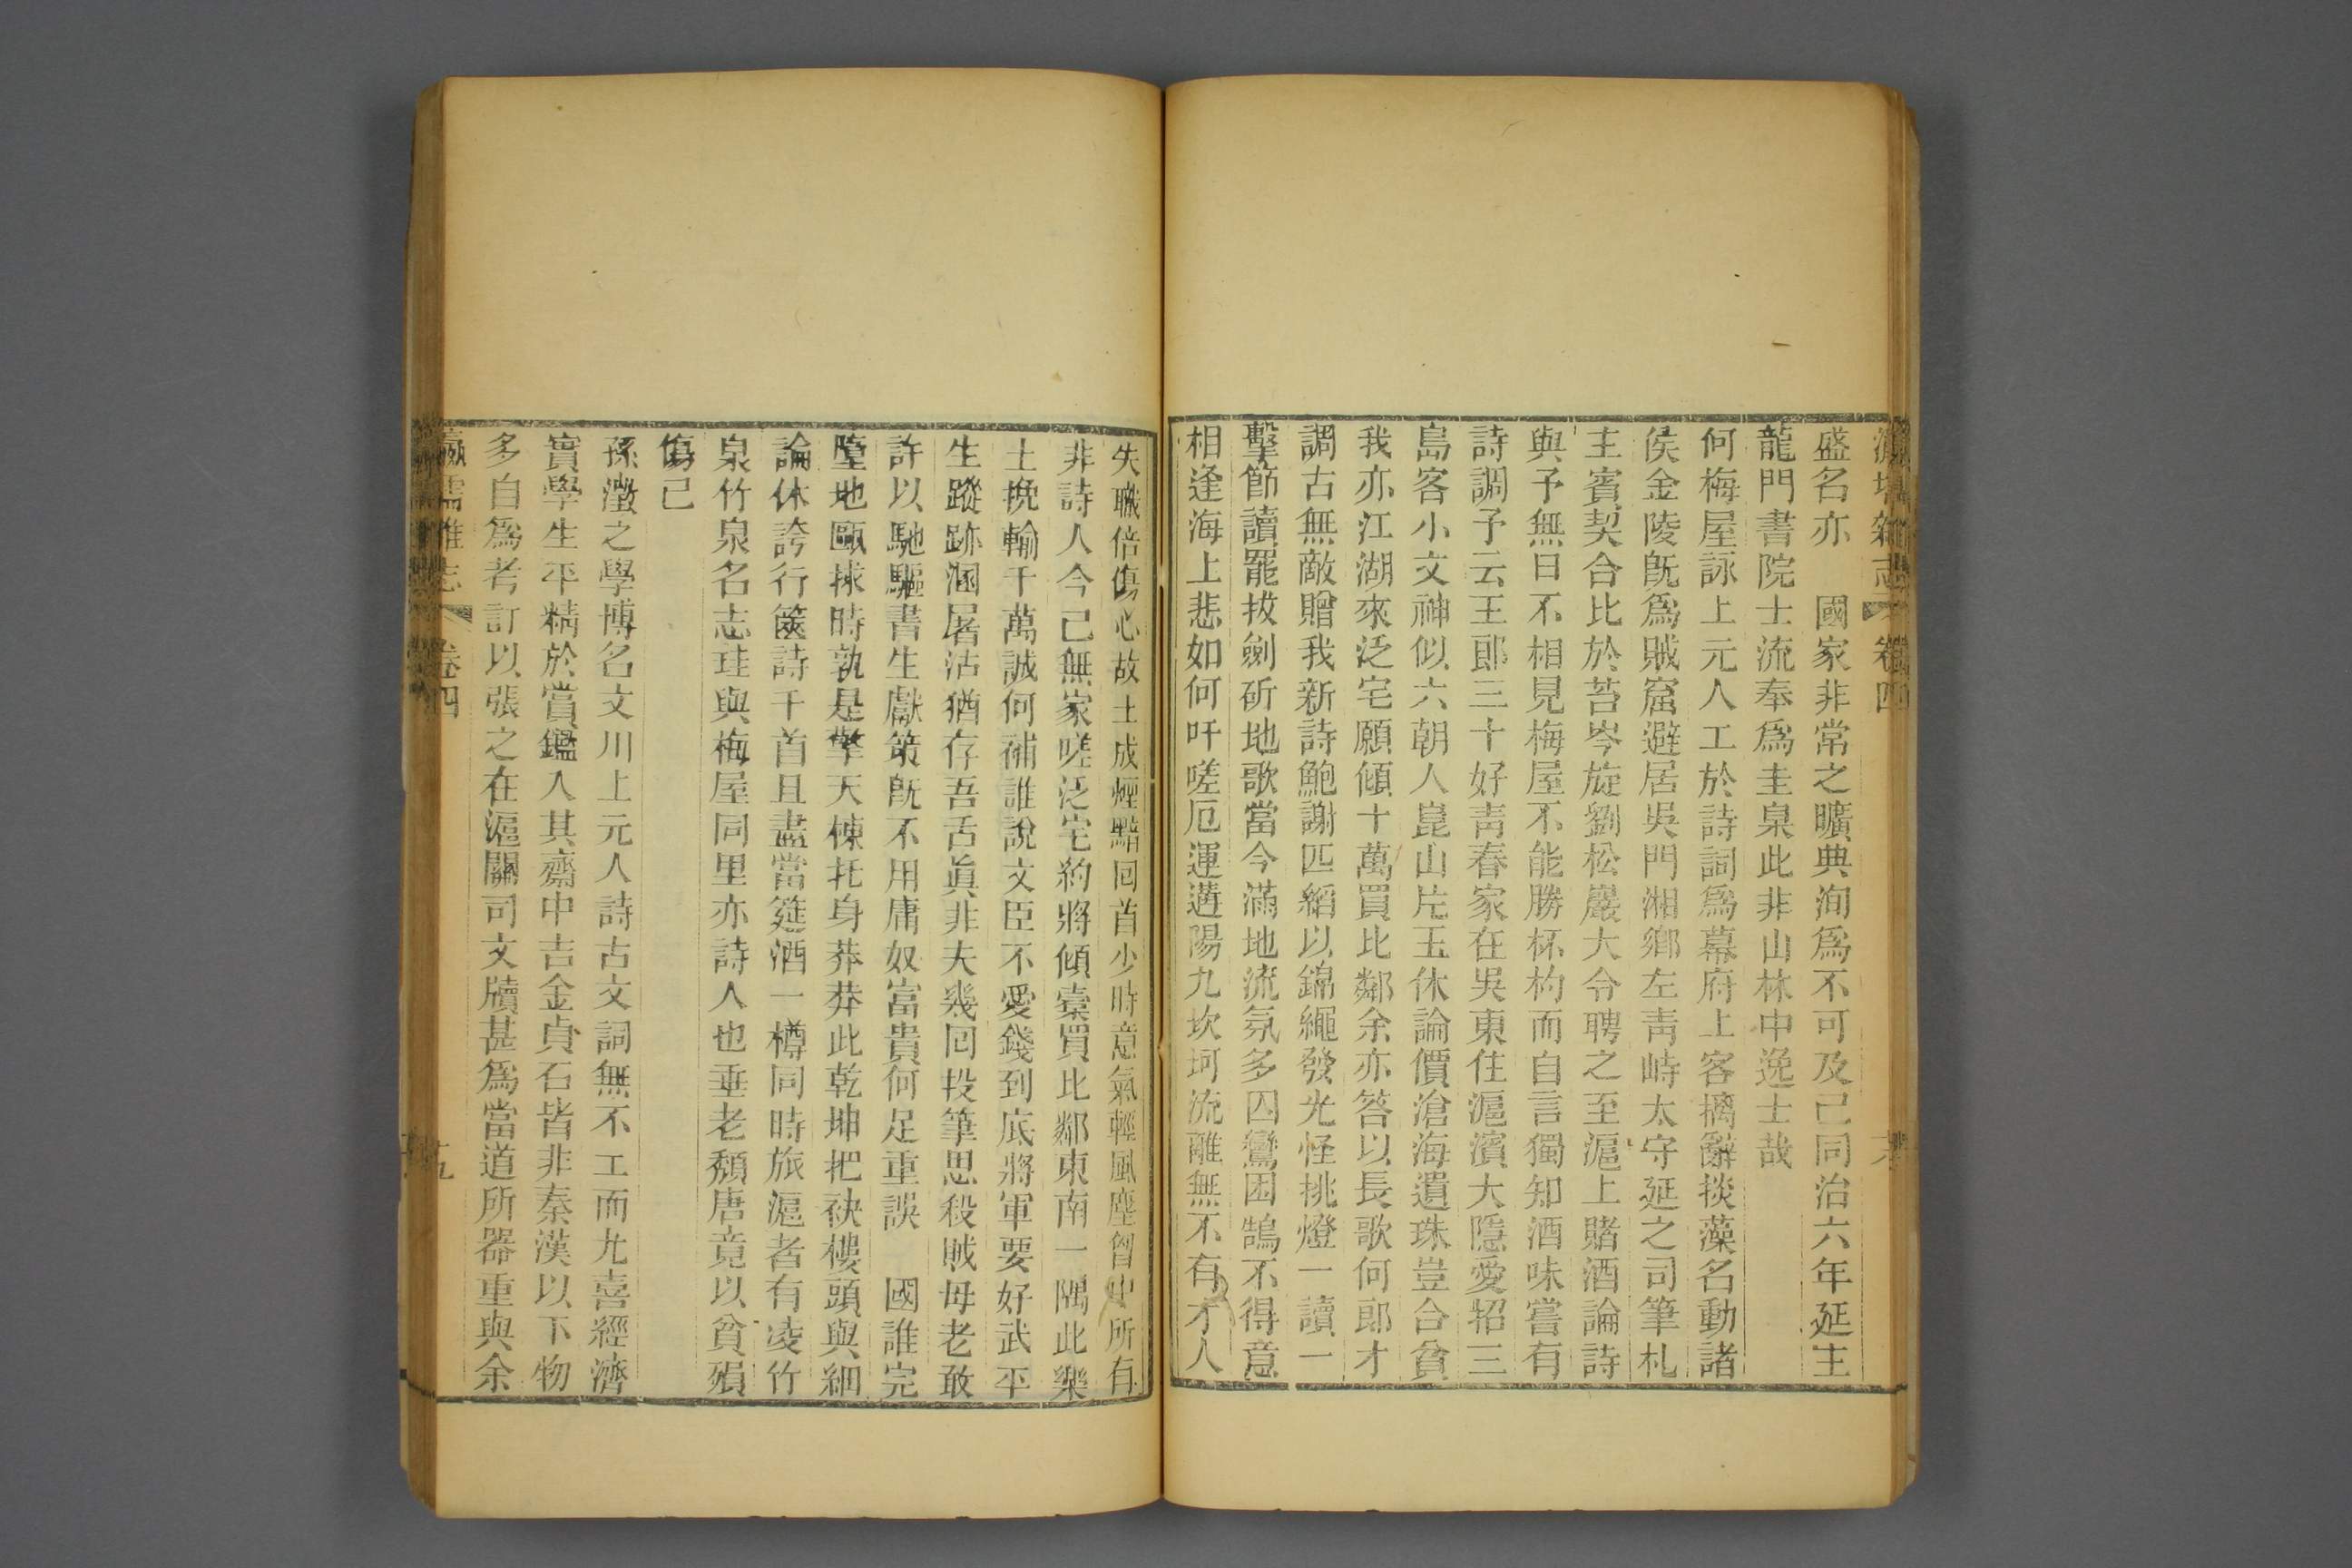 瀛壖雜志 卷四
盛名亦　國家非常之曠典洵爲不可及已同治六年延主
龍門書院士流奉爲圭臬此非山林中逸士哉
何梅屋詠上元人工於詩詞爲幕府上客摛辭掞藻名動諸
侯金陵旣爲賊窟避居吳門湘鄉左靑峙太守延之司筆札
主賓契合比於苔岑旋劉松巖大令聘之至滬上賭酒論詩
與予無日不相見梅屋不能勝杯杓而自言獨知酒味嘗有
詩調予云王郎三十好靑春家在吳東住滬濱大隱愛招三
島客小文神似六朝人崑山片玉休論價滄海遺珠豈合貧
我亦江湖來泛宅願傾十萬買比鄰余亦答以長歌何郎才
調古無敵贈我新詩鮑謝匹縚以錦繩發光怪挑燈一讀一
擊節讀罷拔劍斫地歌當今滿地流氛多囚鸞困鵠不得意
相逢海上悲如何吁嗟厄運遘陽九坎坷流離無不有才人
失職倍傷心故土成煙黯回首少時意氣輕風塵曾中所有
非詩人今已無家嗟泛宅約將傾橐買比鄰東南一隅此樂
土挽輸千萬誠何補誰說文臣不愛錢到底將軍要好武平
生蹤跡溷屠沽猶存吾舌眞非夫幾回投筆思殺賊母老敢
許以馳驅書生獻策旣不用庸奴富貴何足重誤　國誰完
墮地甌捄時孰是擎天棟托身莽莽此乾坤把袂樓頭與細
論休誇行篋詩千首且盡當筵酒一樽同時旅滬者有凌竹
泉竹泉名志珪與梅屋同里亦詩人也垂老頹唐竟以貧殞
傷已
孫澂之學博名文川上元人詩古文詞無不工而尤喜經濟
實學生平精於賞鑑人其齋中吉金貞石皆非秦漢以下物
多自爲考訂以張之在滬關司文牘甚爲當道所器重與余
瀛壖雜志 卷四